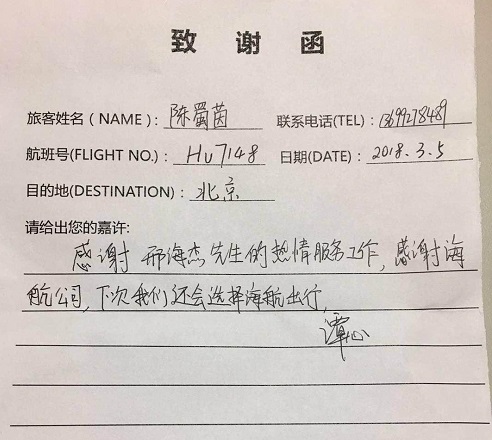 致谢函
旅客姓名(NAME): 陈蜀茵 联系电话(TEL): 13699278489
航班号(FLIGHT NO.): HU7148 日期(DATE): 2018.3.5
目的地(DESTINATION): 北京
请给出您的嘉许:
感谢邢海杰先生的热情服务工作,感谢海
航公司,下次我们还会选择海航出行,
谭心